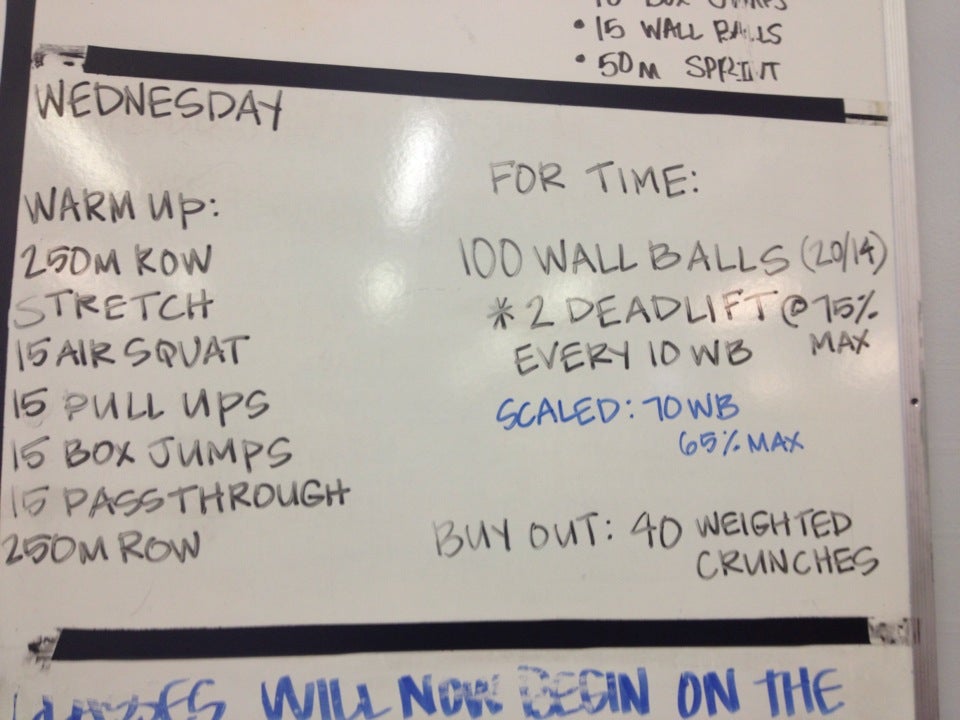 • 15 WALL BALLS
• 50M SPRINT
WEDNESDAY
WARM UP:
250M ROW
STRETCH
15 AIR SQUAT
15 PULL UPS
15 BOX JUMPS
15 PASSTHROUGH
250M ROW
FOR TIME:
100 WALL BALLS (20/14)
* 2 DEADLIFT @ 75%
MAX
EVERY 10 WB
SCALED: 70 WB
65% MAX
BUY OUT: 40 WEIGHTED
CRUNCHES
WILL NOW BEGIN ON THE